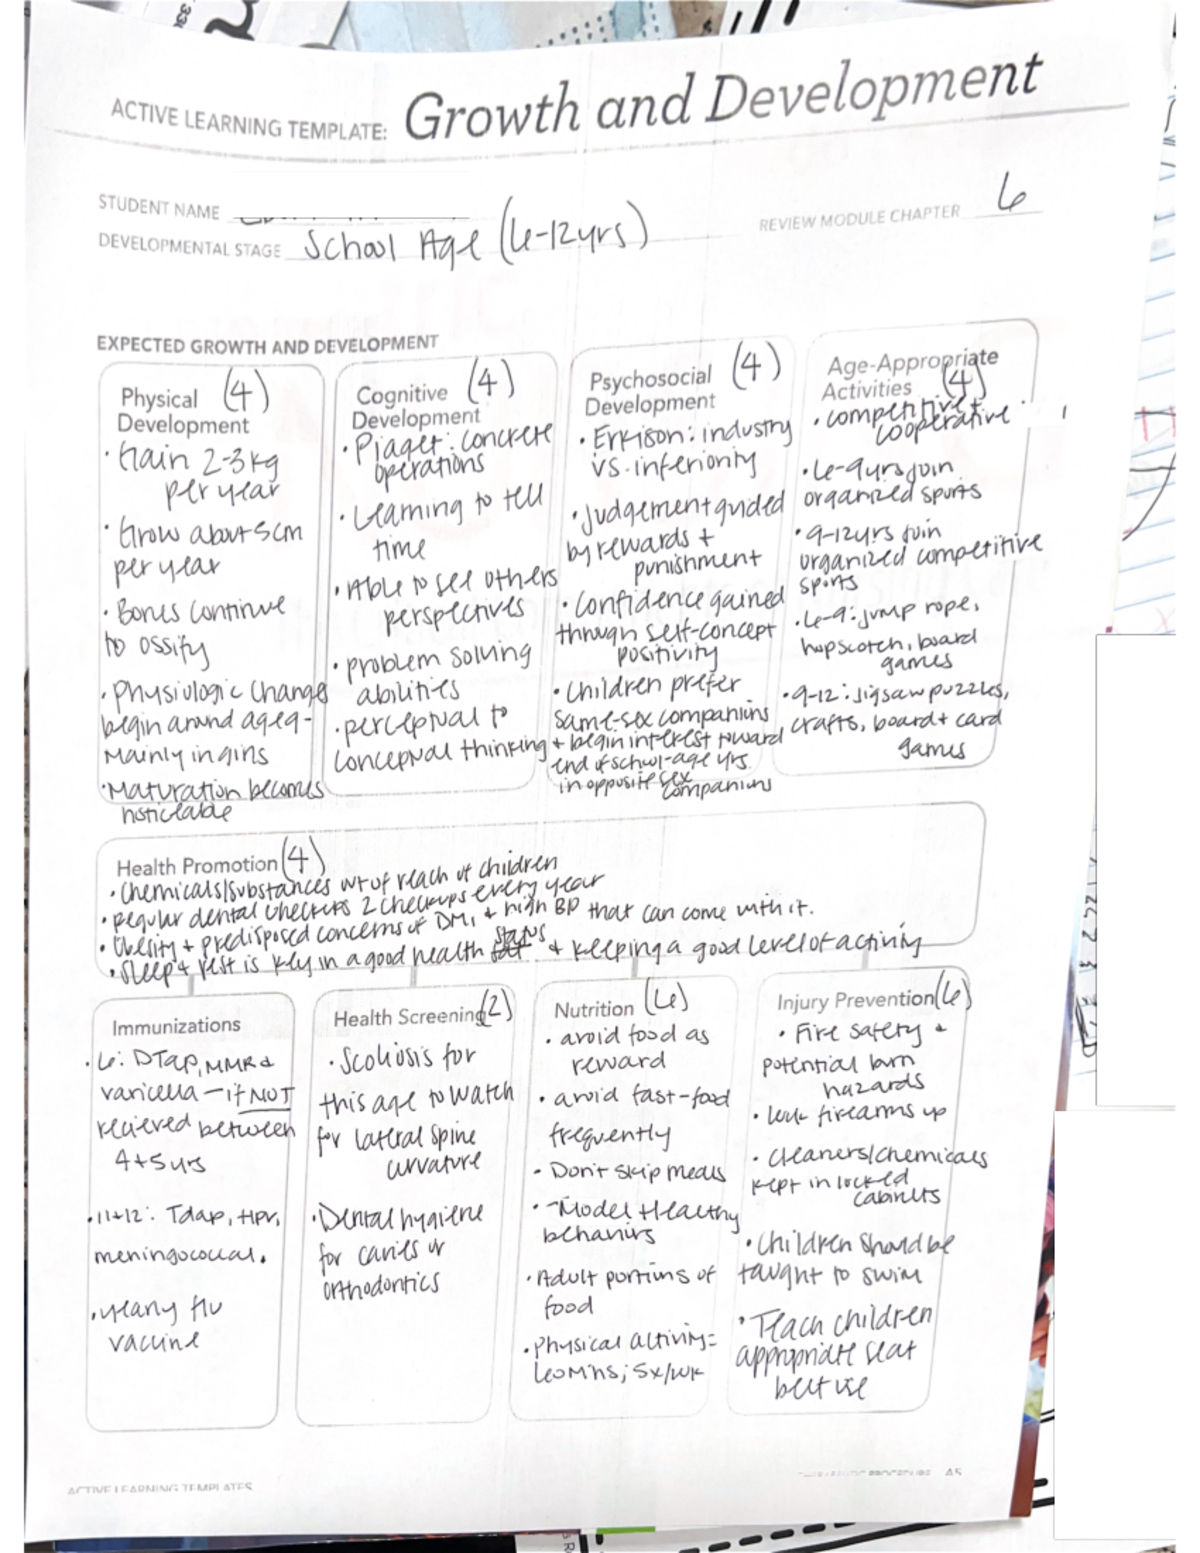 ACTIVE LEARNING TEMPLATE: Growth and Development
STUDENT NAME
REVIEW MODULE CHAPTER 6
DEVELOPMENTAL STAGE School Age (6-12yrs)
EXPECTED GROWTH AND DEVELOPMENT
Physical (4)
Development
• Gain 2-3kg
per year
• Grow about 5cm
per year
• Bones continue
to ossify
• Physiologic changes
begin around age 9-
Mainly in girls
• Maturation becomes
noticeable
Cognitive (4)
Development
• Piaget: concrete
operations
• Learning to tell
time
• Able to see others
perspectives
• problem solving
abilities
• perceptual to
conceptual thinking
Psychosocial (4)
Development
• Erkison: industry
vs. inferiority
• Judgement guided
by rewards +
punishment
• Confidence gained
through self-concept
positivity
• Children prefer
same-sex companions
+ begin interest toward
end of school-age yrs.
in opposite sex
companions
Age-Appropriate
Activities (4)
• competitive +
cooperative
• 6-9yrs join
organized sports
• 9-12yrs join
organized competitive
sports
• 6-9: jump rope,
hopscotch, board
games
• 9-12: jigsaw puzzles,
crafts, board + card
games
Health Promotion (4)
• Chemicals/substances out of reach of children
• Regular dental checkers 2 checkups every year
• Obesity + predisposed concerns of DM1 + high BP that can come with it.
• Sleep + rest is key in a good health status + keeping a good level of activity
Immunizations
• 6: DTap, MMR +
varicella - if NOT
recieved between
4+5yrs
• 11+12: Tdap, HPV,
meningococcal.
• yearly flu
vaccine
Health Screening (2)
• Scoliosis for
this age to watch
for lateral spine
curvature
• Dental hygiene
for caries or
orthodontics
Nutrition (6)
• avoid food as
reward
• avoid fast-food
frequently
• Don't skip meals
• Model Healthy
behaviors
• Adult portions of
food
• Physical activity=
60mins; 5x/wk
Injury Prevention (6)
• Fire safety +
potential burn
hazards
• lock firearms up
• Cleaners/chemicals
kept in locked
cabinets
• Children should be
taught to swim
• Teach children
appropriate seat
belt use
ACTIVE LEARNING TEMPLATES
THERAPEUTIC PROCEDURE A5